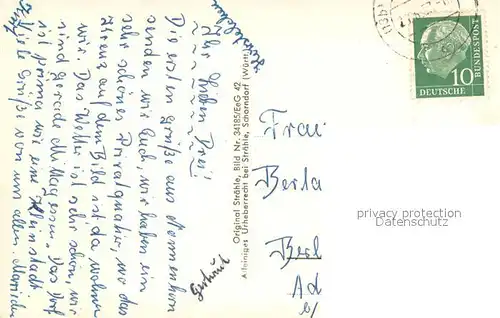 Ihr lieben Drei!
Die ersten Grüße aus Nonnenhorn
senden wir Euch, wir haben ein
sehr schönes Privatquatier, wo das
Kreuz auf dem Bild ist da wohnen
wir. Das Wetter ist sehr schön, wir
sind gerade Mittagessen. Das Dorf
ist prima wie eine Kleinstadt.
Viele Grüße von uns allen
Gertrud
Original Strähle, Bild Nr. 34185/EeG-42
Alleiniges Urheberrecht bei Strähle, Schorndorf (Württ)
10
DEUTSCHE
BUNDESPOST
Frau
Berta
Berl
Ad
privacy protection
Datenschutz